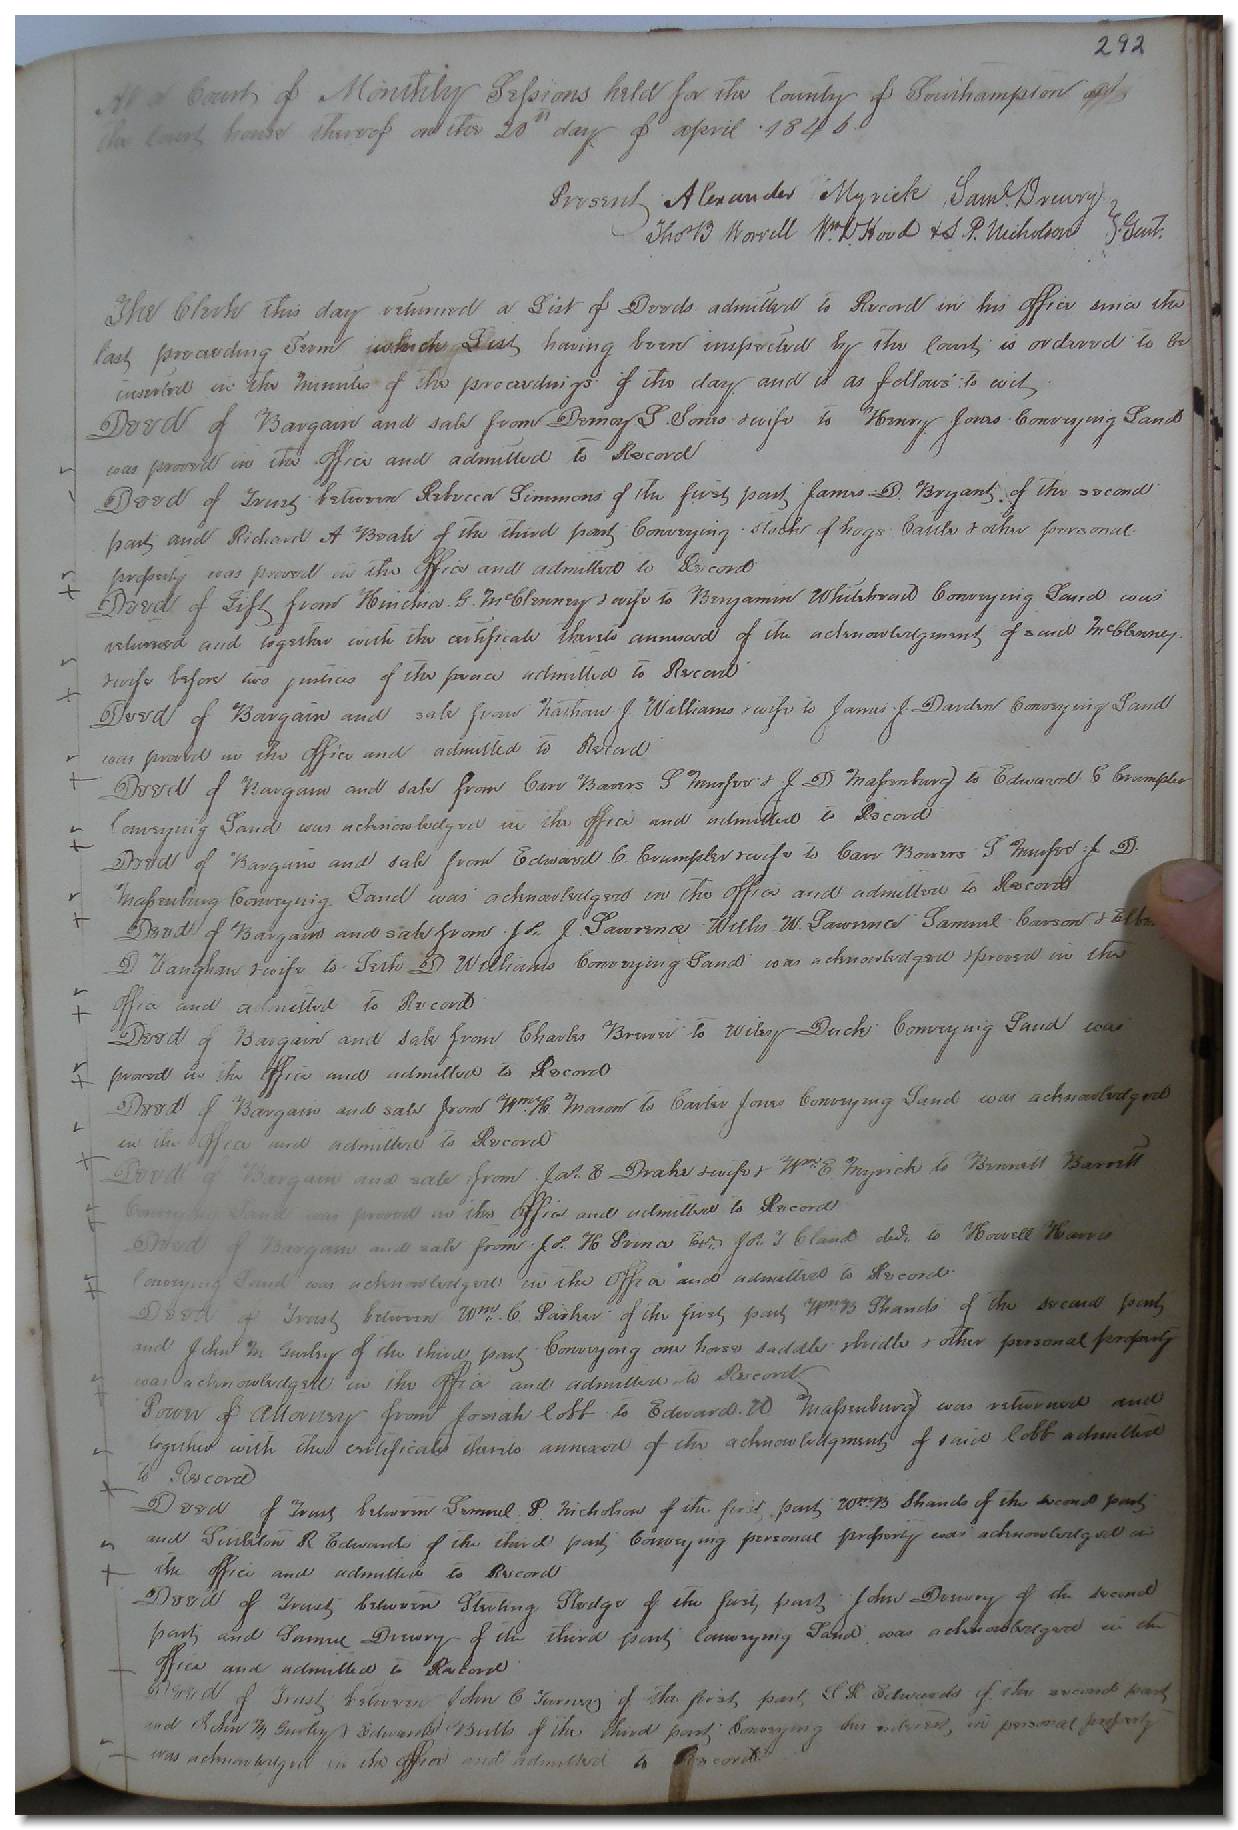 292
At a Court of Monthly Sessions held for the County of Southampton at
the Court house thereof on the 20th day of april 1846
Present Alexander Myrick Saml. Drewry
Thos B Worrell Wm D Hood & S. P. Nicholson Gent.
The Clerk this day returned a List of Deeds admitted to Record in his office since the
last proceeding Term which List having been inspected by the Court is ordered to be
inserted in the minutes of the proceedings of the day and is as follows to wit
Deed of Bargain and sale from S. & wife to Henry Jones Conveying Land
was proved in the Office and admitted to Record
Deed of Trust between Rebecca Simmons of the first part James D. Bryant of the second
part and Richard A Beale of the third part Conveying Stock of hogs Cattle & other personal
property was proved in the Office and admitted to Record
Deed of Gift from Hinchia G. McClenney & wife to Benjamin Whitehead Conveying Land was
returned and together with the certificate thereto annexed of the acknowledgment of said McClenney
& wife before two justices of the peace admitted to Record
Deed of Bargain and sale from Nathan J. Williams & wife to James J. Darden Conveying Land
was proved in the Office and admitted to Record
Deed of Bargain and sale from Carr Bowers S Murfee & J. D Massenburg to Edward C Crumpler
Conveying Land was acknowledged in the Office and admitted to Record
Deed of Bargain and sale from Edward C. Crumpler & wife to Carr Bowers S Murfee J. D.
Massenburg Conveying Land was acknowledged in the Office and admitted to Record
Deed of Bargain and sale from J. Lawrence Willis W. Lawrence Samuel Carson &
D Vaughan & wife to D Williams Conveying Land was acknowledged & proved in the
Office and admitted to Record
Deed of Bargain and sale from Charles Brewer to Wiley Duck Conveying Land was
proved in the Office and admitted to Record
Deed of Bargain and sale from Wm. H. Mason to Carter Jones Conveying Land was acknowledged
in the Office and admitted to Record
Deed of Bargain and sale from Jas. E Drake & wife & Wm. E. Myrick to Bennett Barrett
Conveying Land was proved in the Office and admitted to Record
Deed of Bargain and sale from H Prince Exr. decd. to Howell Harris
Conveying Land was acknowledged in the Office and admitted to Record
Deed of Trust between Wm. C. Parker of the first part Wm B Shands of the second part
and John M Gurley of the third part Conveying one horse saddle bridle & other personal property
was acknowledged in the Office and admitted to Record
Power of Attorney from Josiah Cobb to Edward W Massenburg was returned and
together with the certificate thereto annexed of the acknowledgment of said Cobb admitted
to Record
Deed of Trust between Lemuel P. Nicholson of the first part Wm B Shands of the second part
and Littleton R Edwards of the third part Conveying personal property was acknowledged in
the Office and admitted to Record
Deed of Trust between Sterling Sledge of the first part John Drewry of the second
part and Samuel Drewry of the third part Conveying Land was acknowledged in the
Office and admitted to Record
Deed of Trust between John C Turner of the first part L R Edwards of the second part
and John M Gurley & Edwards Butts of the third part Conveying his interest in personal property
was acknowledged in the Office and admitted to Record